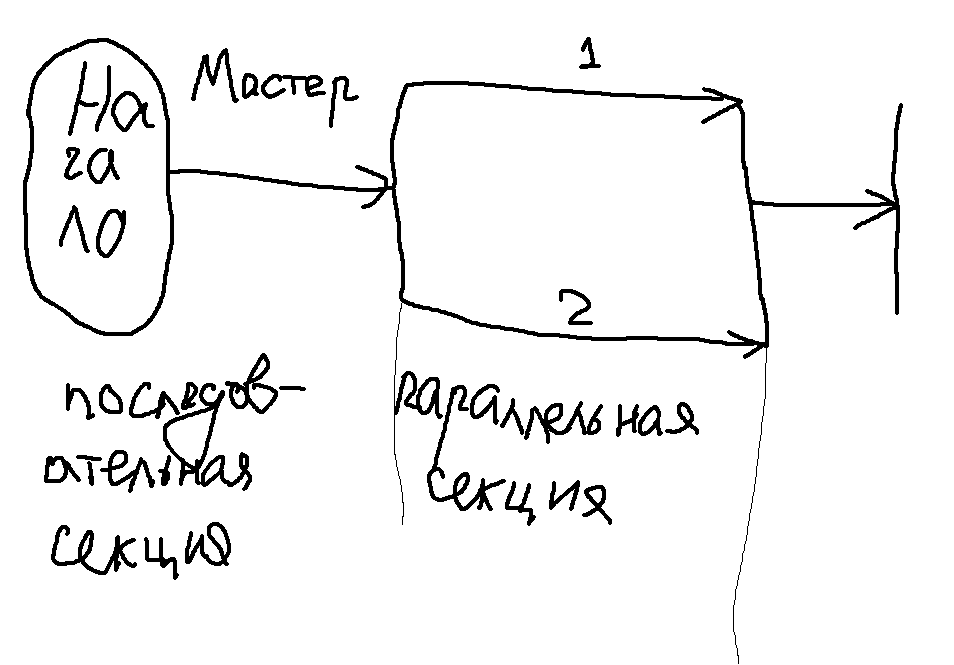 На
ча
ло
Мастер
1
2
последов-
ательная
секция
параллельная
секция